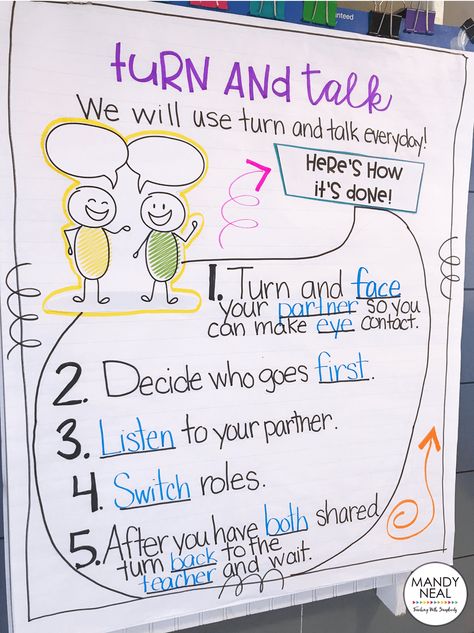 tURN AND talk
We will use turn and talk everyday!
HERE'S HOW
it'S DONE!
1. Turn and face
your partner so you
can make eye contact.
2. Decide who goes first.
3. Listen to your partner.
4. Switch roles.
5. After you have both shared
turn back to the
teacher and wait.
MANDY
NEAL
Teaching With Simplicity